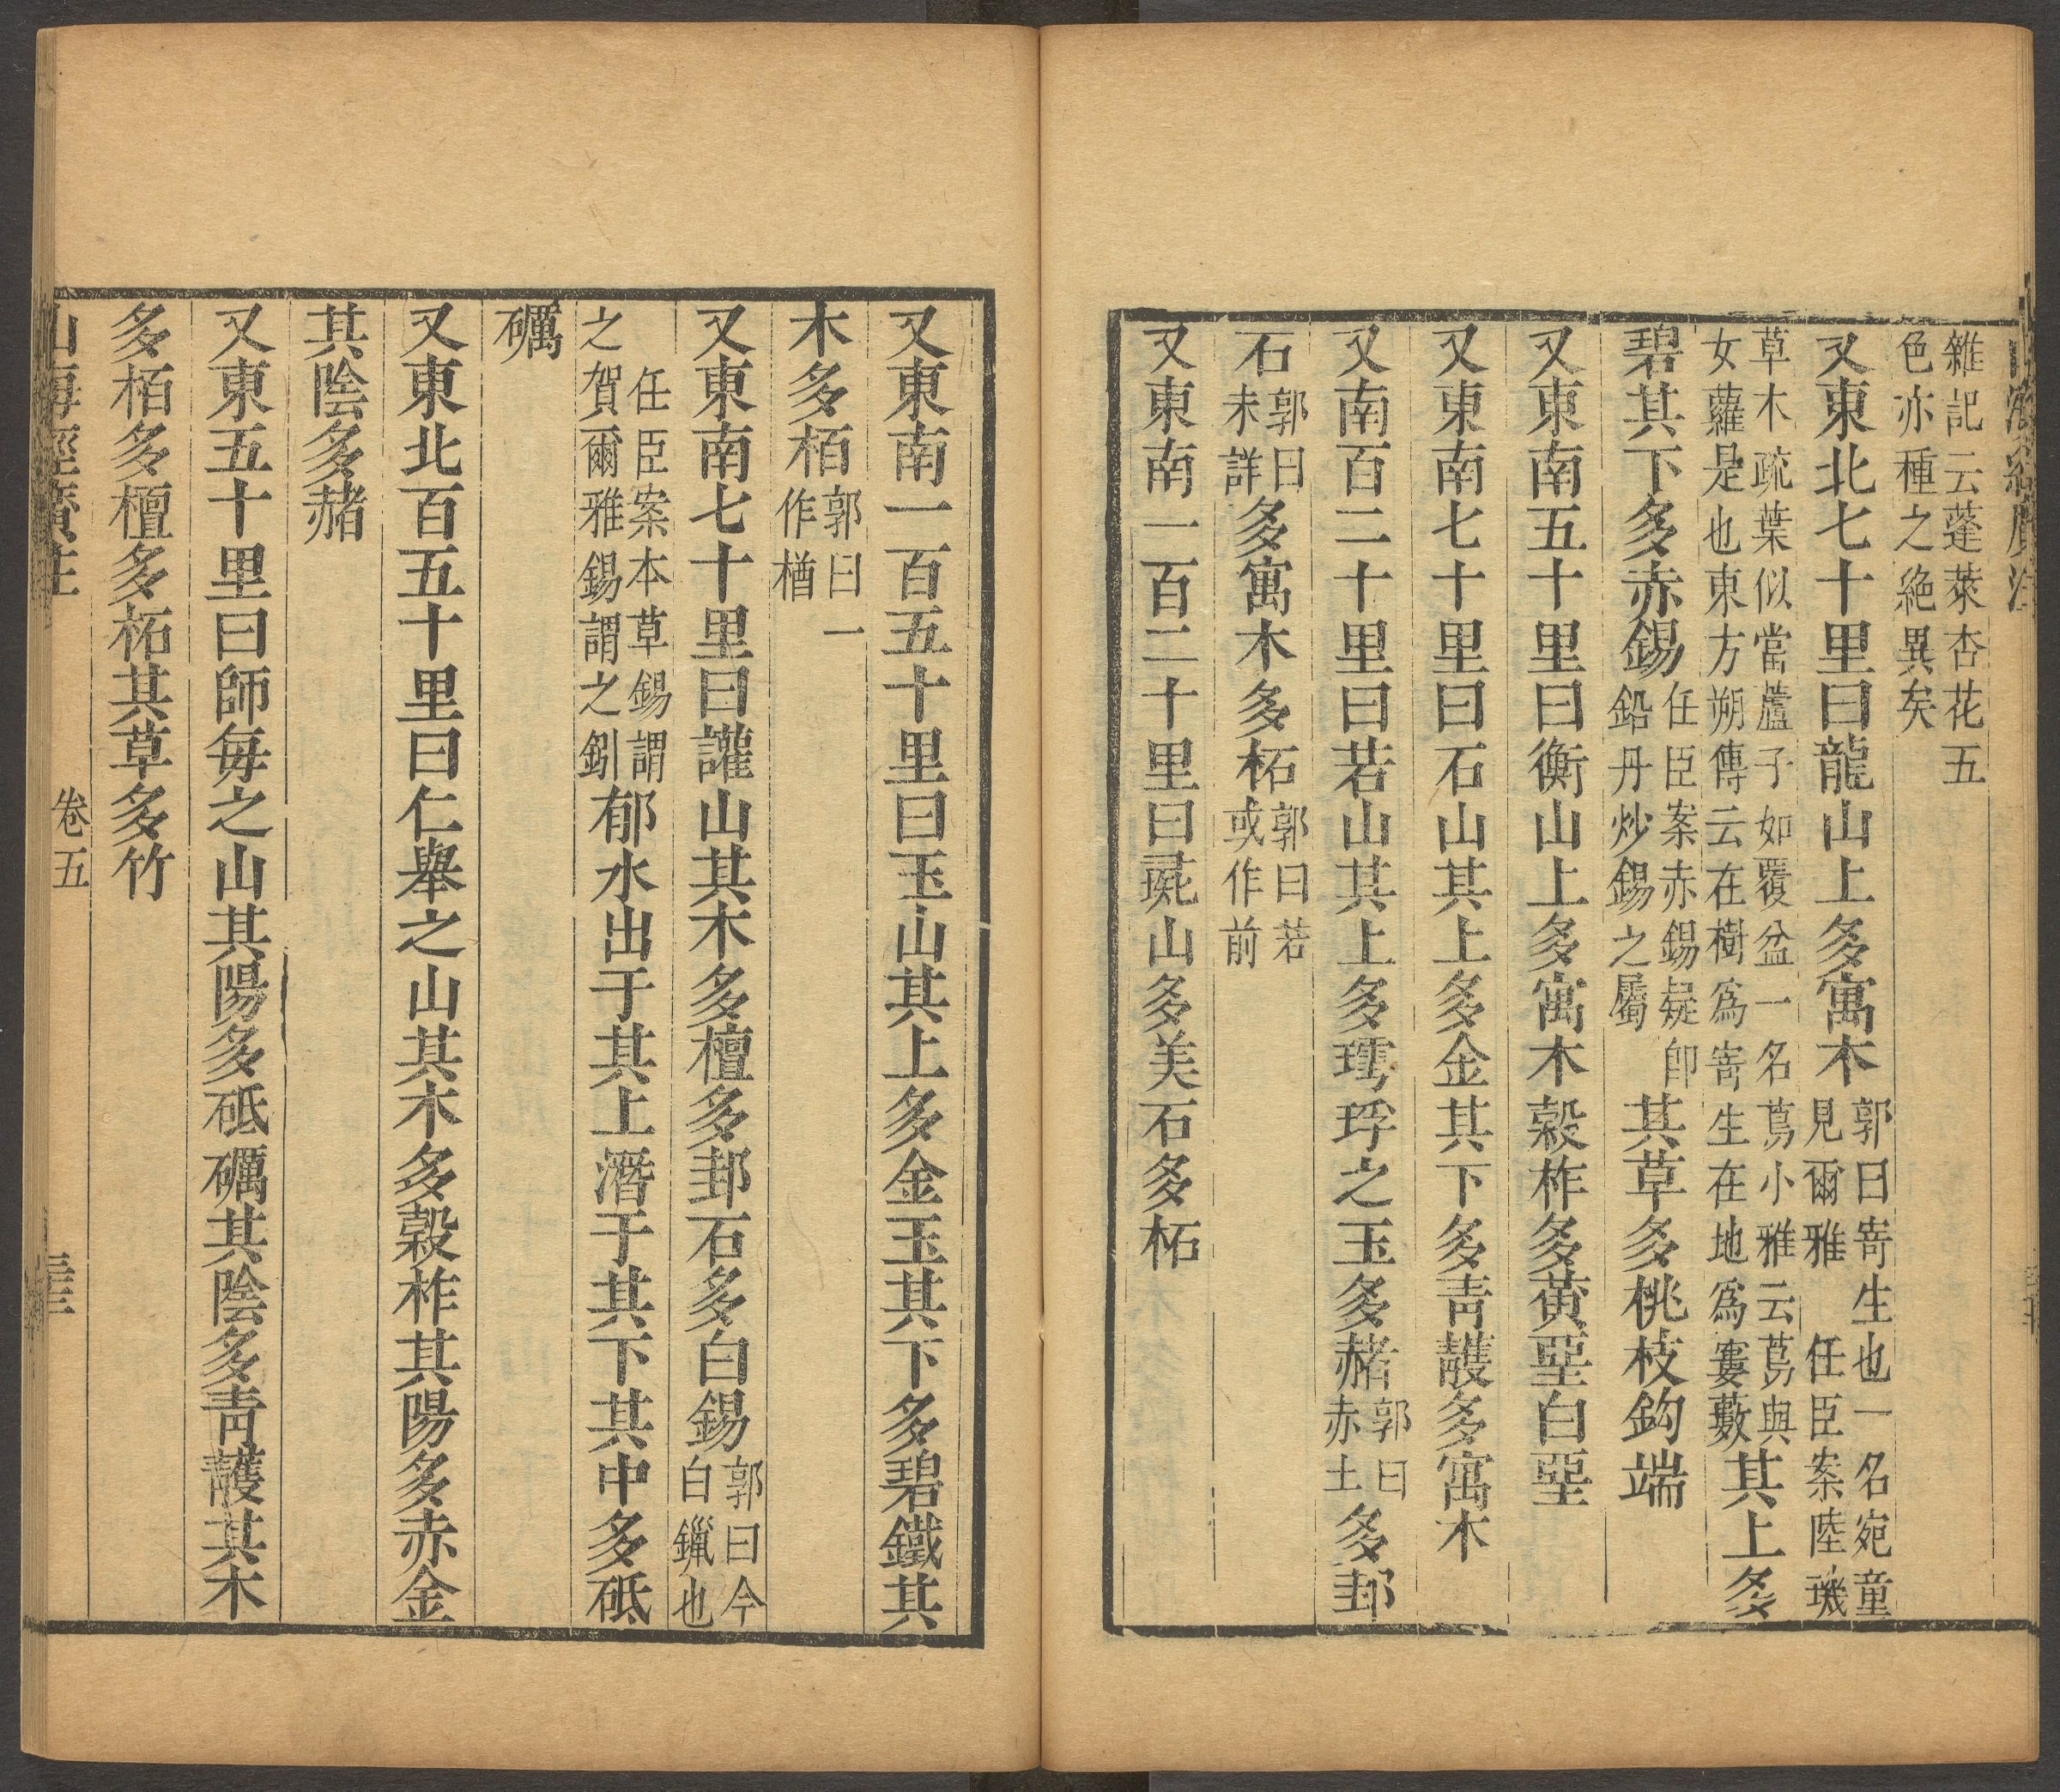 山海經廣注
雜記云蓬萊杏花五
色亦種之絶異矣
又東北七十里曰龍山上多寓木郭曰寄生也一名宛童見爾雅 任臣案陸璣
草木疏葉似當蘆子如覆盆一名蔦小雅云蔦與女蘿是也東方朔傳云在樹爲寄生在地爲寠藪其上多
碧其下多赤錫任臣案赤錫疑卽鉛丹炒錫之屬其草多桃枝鈎端
又東南五十里曰衡山上多寓木穀柞多黃堊白堊
又東南七十里曰石山其上多金其下多青雘多寓木
又南百二十里曰若山其上多㻬琈之玉多赭郭曰赤土多邽
石郭曰未詳多寓木多柘郭曰若或作前
又東南一百二十里曰彘山多美石多柘
又東南一百五十里曰玉山其上多金玉其下多碧鐵其
木多栢郭曰一作楢
又東南七十里曰讙山其木多檀多邽石多白錫郭曰今白鑞也
任臣案本草錫謂之賀爾雅錫謂之鈏郁水出于其上潛于其下其中多砥
礪
又東北百五十里曰仁舉之山其木多穀柞其陽多赤金
其陰多赭
又東五十里曰師每之山其陽多砥礪其陰多青雘其木
多栢多檀多柘其草多竹
山海經廣注 卷五